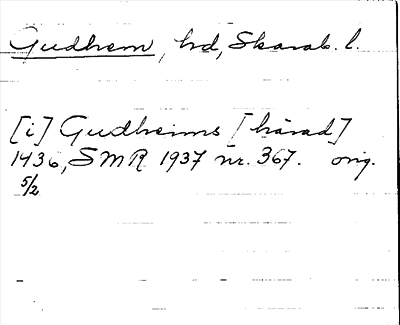 Gudhem, hd, Skarab. l.
[i] Gudheims [härad]
1436, SMR 1937 nr. 367. orig.
5/2